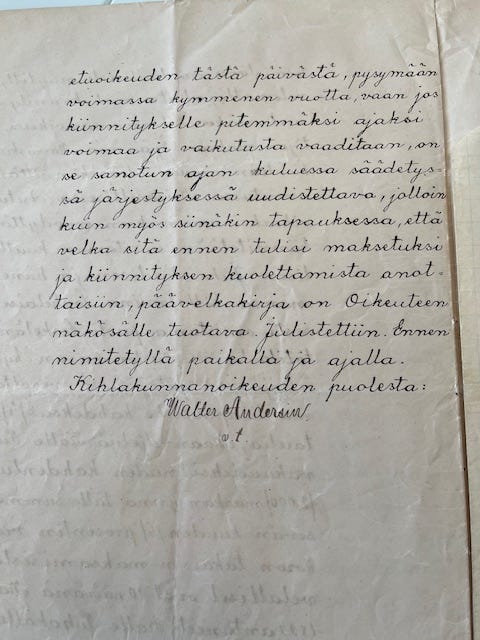 etuoikeuden tästä päivästä, pysymään
voimassa kymmenen vuotta, vaan jos
kiinnitykselle pitemmäksi ajaksi
voimaa ja vaikutusta vaaditaan, on
se sanotun ajan kuluessa säädetys-
sä järjestyksessä uudistettava, jolloin
kuin myös siinäkin tapauksessa, että
velka sitä ennen tulisi maksetuksi
ja kiinnityksen kuolettamista anot-
taisiin, päävelkakirja on Oikeuteen
näkösälle tuotava. Julistettiin. Ennen
nimitetyllä paikalla ja ajalla.
Kihlakunnanoikeuden puolesta:
Walter Andersin
v. t.